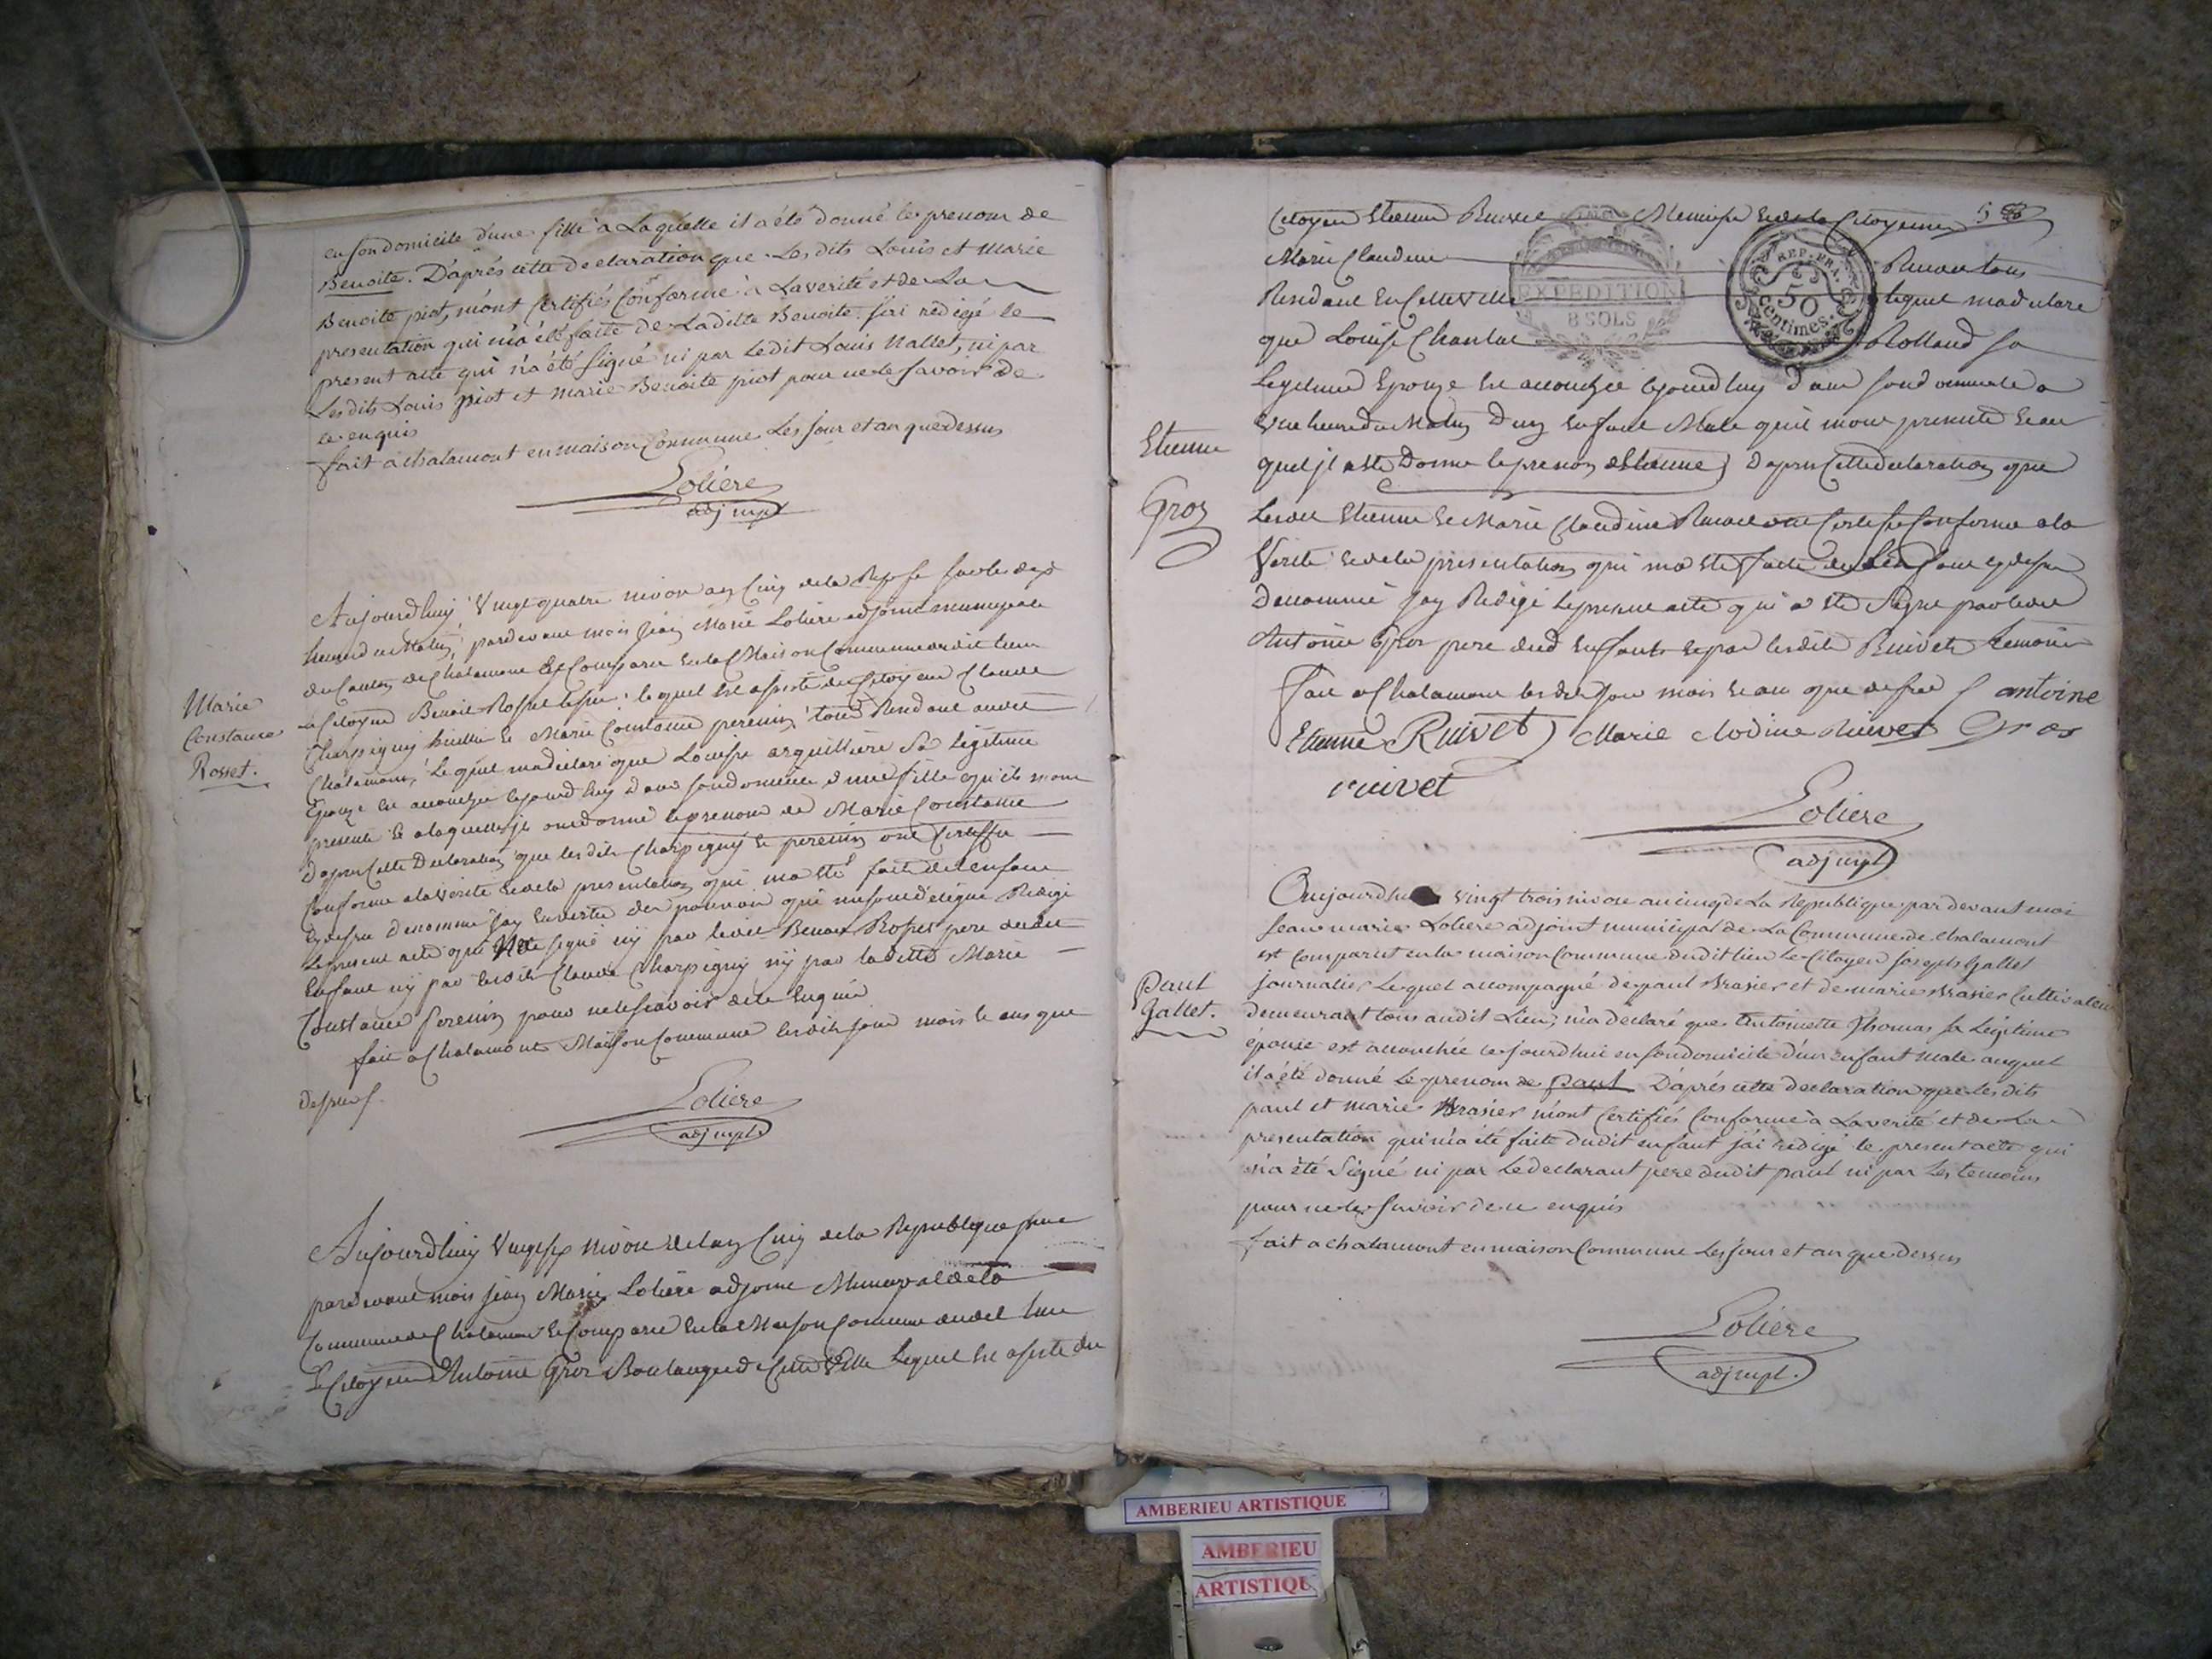 en son domicile d'une fille a Laquelle il a été donné le prenom de
Benoite. D'aprés cette declaration que Les dits Louis et Marie
Benoite piot, m'ont Certifiés Conforme à La verité et de La
presentation qui m'a été faitte de Laditte Benoite j'ai rédigé le
present acte qui n'a été signé ni par Ledit Louis Nallet, ni par
Les dits Louis piot et Marie Benoite piot pour ne le savoir de
ce enquis
fait a chalamont en maison Commune Les jour et an que dessus
Loliere
adj mpl
Marie
Constance
Rosset.
Aujourdhuy Vingt quatre nivose an Cinq de la
heure du Matin, pardevant mois jean Marie Loliere adjoint municipale
du Canton de Chalamont Est Comparu en la Maison Commune dudit lieu
le Citoyen Benoit Rosset lequel est assisté du Citoyen Claude
Charpigny et Marie Constance perenin tous Residant audit
Chalamont, Lequel ma declaré que Louise arguilliere Sa legitime
Epouze est accouchée cejourdhuy dans son domicile d'une fille qu'ils mont
presente et a laquelle il ont donné le prenom de Marie Constance
Dapres Cette Declaration que lesdits Charpigny et perenin ont Certiffié
Conforme a la verite et de la presentation qui ma ete faite de lenfant
cy dessu denommé jay en vertu des pouvoir qui me sont delegué Redigé
le present acte qui Na ete signé ny par ledit Benoit Rosset pere dudit
Enfant ny par ledit Claude Charpigny ny par laditte Marie
Constance perenin pour ne le scavoir de ce Enquis
fait a Chalamont Maison Commune lesdits jour mois et ans que
dessus
Loliere
adj mpl
Aujourdhuy Vingt six nivose de lan Cinq de la Republique
pardevant mois jean Marie Loliere adjoint Municipal de la
Commune de Chalamont Est Comparu En la Maison Commune dudit lieu
Le Citoyen Antoine Gros Boulanger de Cette Ville Lequel est assisté du
Citoyen Etienne Ruivet Menuisier et de la Citoyenne
Marie Claudine Ruivet tous
Residant En Cette Ville lequel ma declaré
que Louise Chanlut Rolland sa
Legitime Epouze est accouchée cejourdhuy dans son domicile a
une heure du Matin d'un Enfant Male quil mont presenté et au
quel jl a ete Donné le prenom d'Etienne D'apres Cette declaration que
Lesdit Etienne et Marie Claudine Ruivet ont Certifié Conforme a la
Verite et de la presentation qui ma ete faite de lenfant cy dessu
denommé jay Redigé le present acte qui a ete Signé par ledit
Antoine Gros pere dud Enfant et par lesdits Ruivet temoins
Fait a Chalamont lesdits jour mois et an que dessus antoine
Etienne Ruivet Marie Clodine Ruivet Gros
ruivet
Loliere
adj mpl
EXPEDITION
8 SOLS
REP. FRA.
50
Centimes.
Etienne
Gros
Aujourdhui vingt trois nivose an cinq de La Republique par devant moi
Jean marie Loliere adjoint municipal de La Commune de chalamont
est Comparut en la maison Commune dudit lieu Le Citoyen joseph Gallet
journalier Lequel accompagné de paul Brasier et de marie Brasier Cultivateurs
demeurant tous audit Lieu, m'a declaré que Antoinette Thomas sa Légitime
épouse est accouchée cejourdhui en son domicile d'un enfant male auquel
il a été donné Le prenom de paul D'aprés cette declaration que Les dits
paul et marie Brasier m'ont Certifiés Conforme à La verité et de La
presentation qui m'a été faite dudit enfant j'ai redigé le present acte qui
n'a été Signé ni par Le declarant pere dudit paul ni par Les temoins
pour ne le savoir de ce enquis
fait a chalamont en maison Commune Les jour et an que dessus
Loliere
adj mpl.
Paul
Gallet.
AMBERIEU ARTISTIQUE
AMBERIEU
ARTISTIQUE